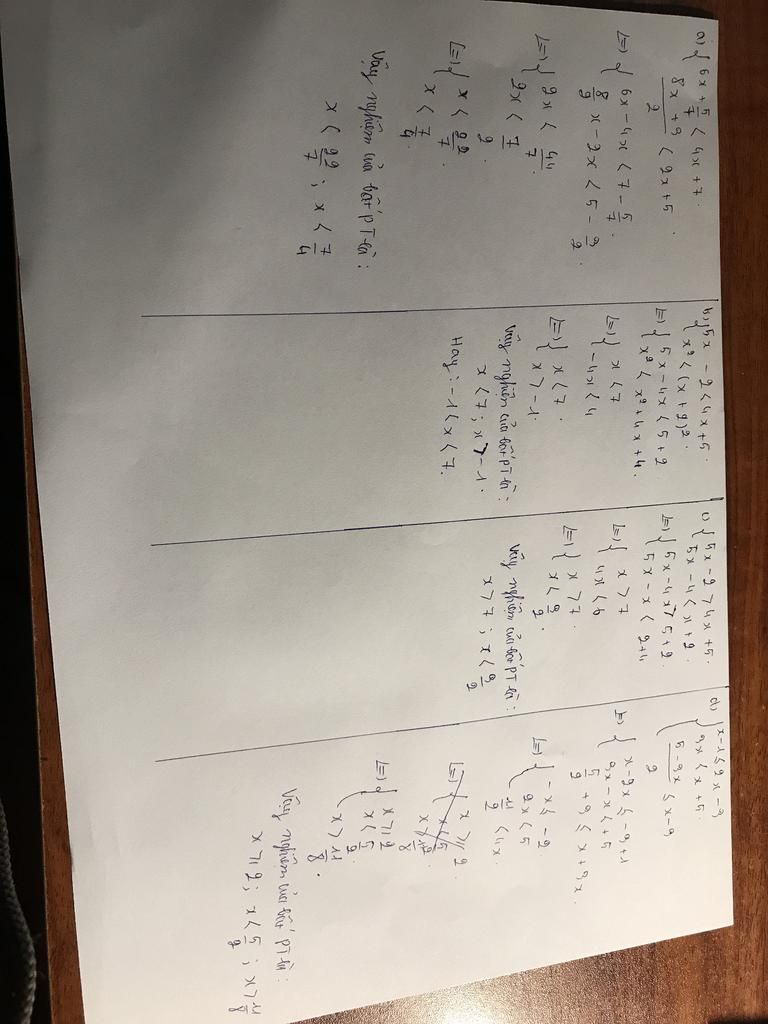 a) { 6x + 5/7 < 4x + 7.
(8x + 3)/2 < 2x + 5.
<=> { 6x - 4x < 7 - 5/7.
8/2 x - 2x < 5 - 3/2.
<=> { 2x < 44/7.
2x < 7/2.
<=> { x < 22/7.
x < 7/4.
Vậy nghiệm của bất PT là:
x < 22/7 ; x < 7/4
b) { 5x - 2 < 4x + 5.
x² < (x + 2)².
<=> { 5x - 4x < 5 + 2
x² < x² + 4x + 4.
<=> { x < 7
-4x < 4
<=> { x < 7.
x > -1.
Vậy nghiệm của bất PT là:
x < 7 ; x > -1.
Hay : -1 < x < 7.
c) { 5x - 2 > 4x + 5.
5x - 4 < x + 2.
<=> { 5x - 4x > 5 + 2.
5x - x < 2 + 4
<=> { x > 7
4x < 6
<=> { x > 7.
x < 3/2.
Vậy nghiệm của bất PT là:
x > 7 ; x < 3/2
d) { x - 1 ≤ 2x - 3
3x < x + 5
(5 - 3x)/2 ≤ x - 3
<=> { x - 2x ≤ -3 + 1
3x - x < +5
5/2 + 3 ≤ x + 3x.
<=> { -x ≤ -2
2x < 5
11/2 ≤ 4x.
<=> { x ≥ 2.
x < 5/2
<=> { x ≥ 2
x < 5/2.
x > 11/8.
Vậy nghiệm của bất PT là:
x ≥ 2 ; x < 5/2 ; x > 11/8